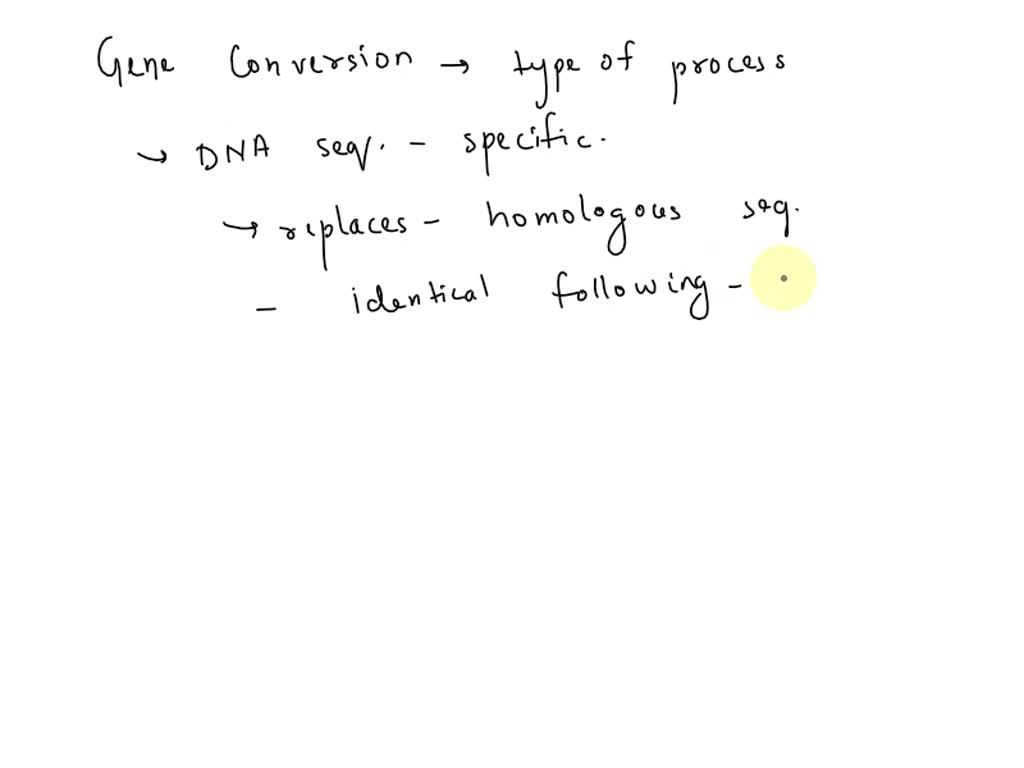 Gene Conversion → type of process
↳ DNA seq. - specific.
↳ replaces - homologous seq.
- identical following -